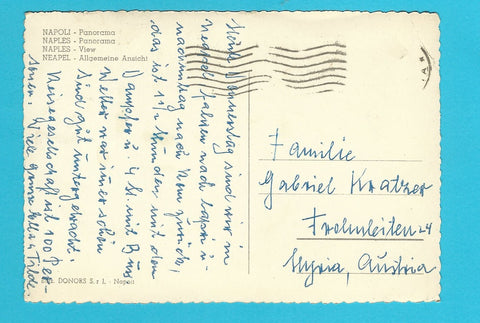 NAPOLI - Panorama
NAPLES - Panorama
NAPLES - View
NEAPEL - Allgemeine Ansicht
Donnerstag sind wir in
Neapel fahren nach Capri u-
nachmittag nach Rom zurück,
das ist 1½ Stunden mit den
Dampfer u. 4 St. mit Bus
Wetter war immer schön
Sind gut untergebracht.
Reisegesellschaft ist 100 Per-
sonen. Viele Grüsse
Tilde.
DONORS S. r. l. - Napoli
Familie
Gabriel Kratzer
Frohnleiten 24
Styria, Austria